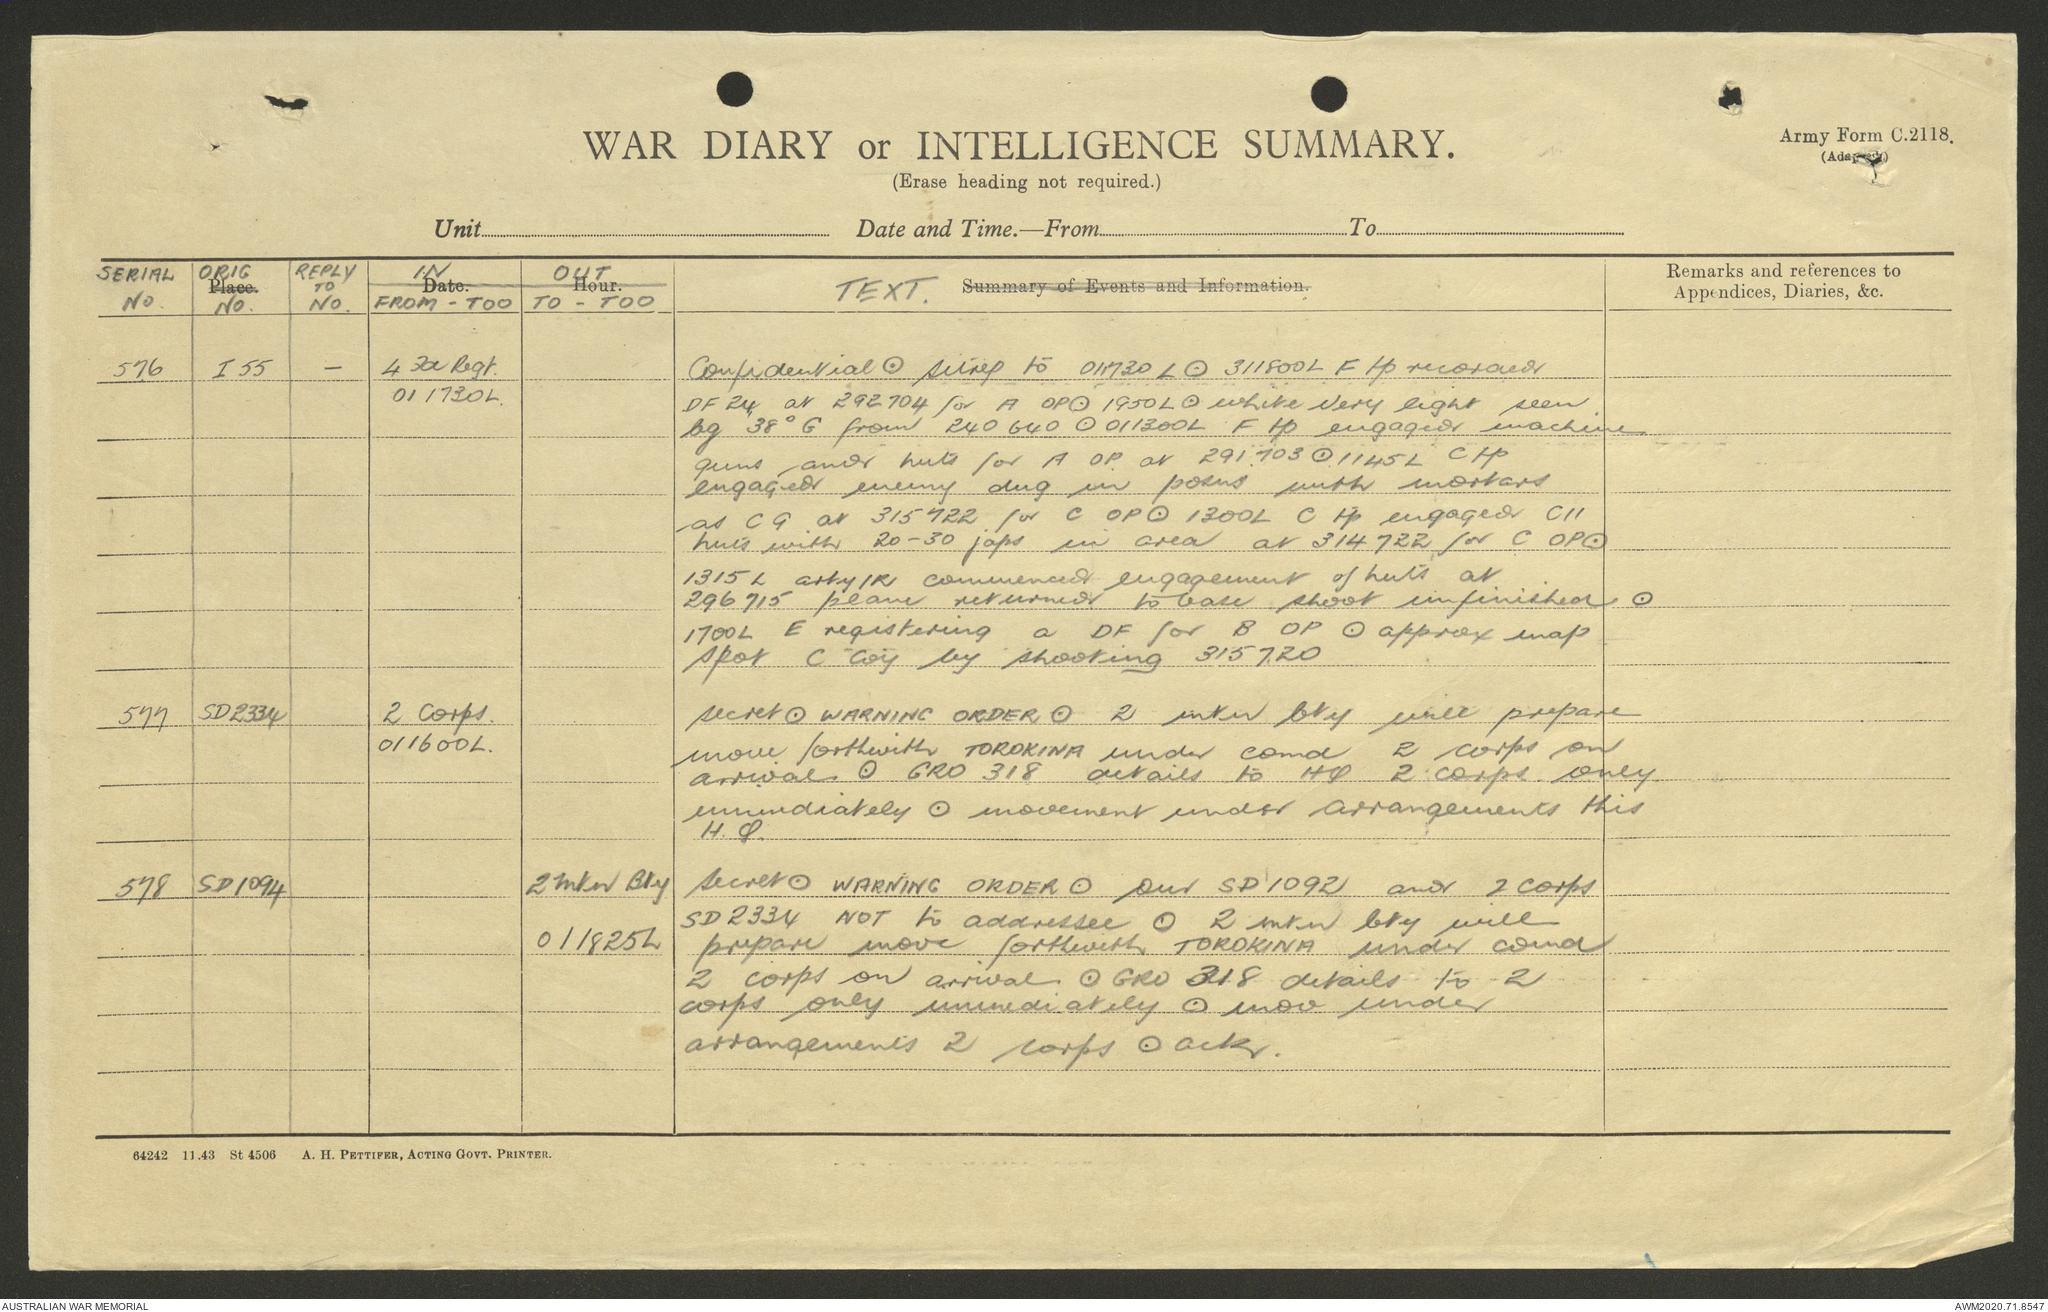 WAR DIARY or INTELLIGENCE SUMMARY.
(Erase heading not required.)
Army Form C.2118.
(Adapted)
Unit Date and Time.—From To
SERIAL No. ORIG Place. No. REPLY TO No. IN Date. FROM - TOO OUT Hour. TO - TOO TEXT. Summary of Events and Information. Remarks and references to Appendices, Diaries, &c.
576 I 55 — 4 Fd Regt. Confidential ⊙ Sitrep to 011730L ⊙ 311800L F tp recorded
011730L. DF 24 at 292704 for A OP ⊙ 1950L ⊙ white Very light seen
bg 38° G from 240640 ⊙ 011300L F tp engaged machine
guns and huts for A OP at 291703 ⊙ 1145L C tp
engaged enemy dug in posns with mortars
as C9 at 315722 for C OP ⊙ 1300L C tp engaged C11
huts with 20-30 japs in area at 314722 for C OP ⊙
1315L arty/R commenced engagement of huts at
296715 plane returned to base shoot unfinished ⊙
1700L E registering a DF for B OP ⊙ approx map
spot C Coy by shooting 315720
577 SD2334 2 Corps. Secret ⊙ WARNING ORDER ⊙ 2 mtn bty will prepare
011600L. move forthwith TOROKINA under comd 2 corps on
arrival ⊙ GRO 318 details to HQ 2 corps only
immediately ⊙ movement under arrangements this
H.Q.
578 SD1094 2 mtn Bty Secret ⊙ WARNING ORDER ⊙ our SD1092 and 2 corps
SD2334 NOT to addressee ⊙ 2 mtn bty will
011825L prepare move forthwith TOROKINA under comd
2 corps on arrival ⊙ GRO 318 details to 2
corps only immediately ⊙ mov under
arrangements 2 corps ⊙ ack.
64242 11.43 St 4506 A. H. PETTIFER, ACTING GOVT. PRINTER.
AUSTRALIAN WAR MEMORIAL
AWM2020.71.8547